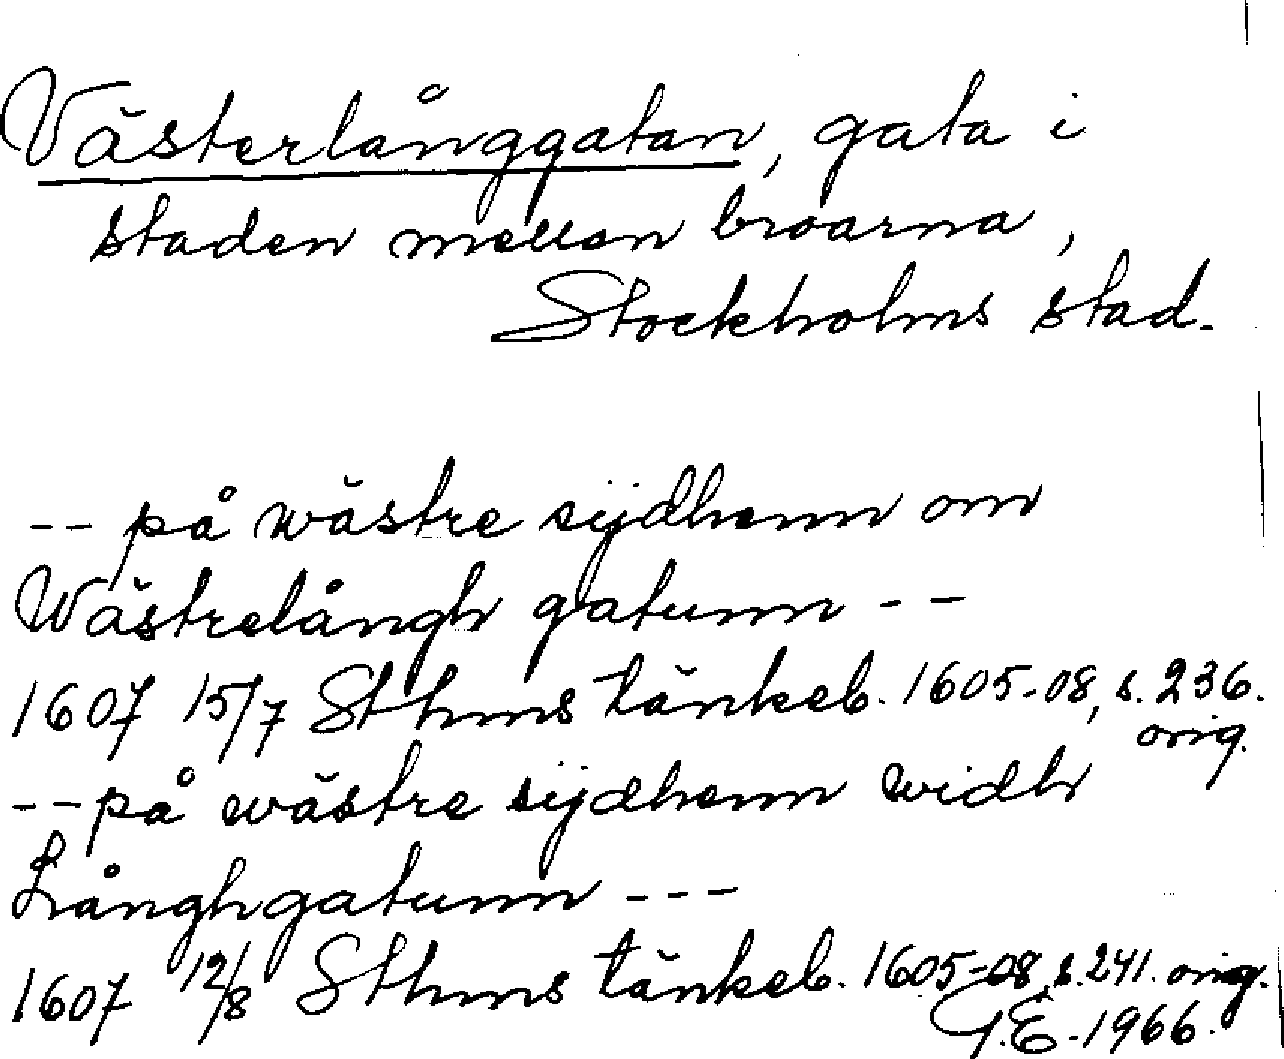 Västerlånggatan, gata i
staden mellan broarna,
Stockholms stad.
-- på wästre sijdhenn om
Wästrelångh gatunn --
1607 15/7 Sthms tänkeb. 1605-08, s. 236.
orig.
-- på wästre sijdhenn widh
Långhgatunn ---
1607 12/8 Sthms tänkeb. 1605-08, s. 241. orig.
G.E. 1966.